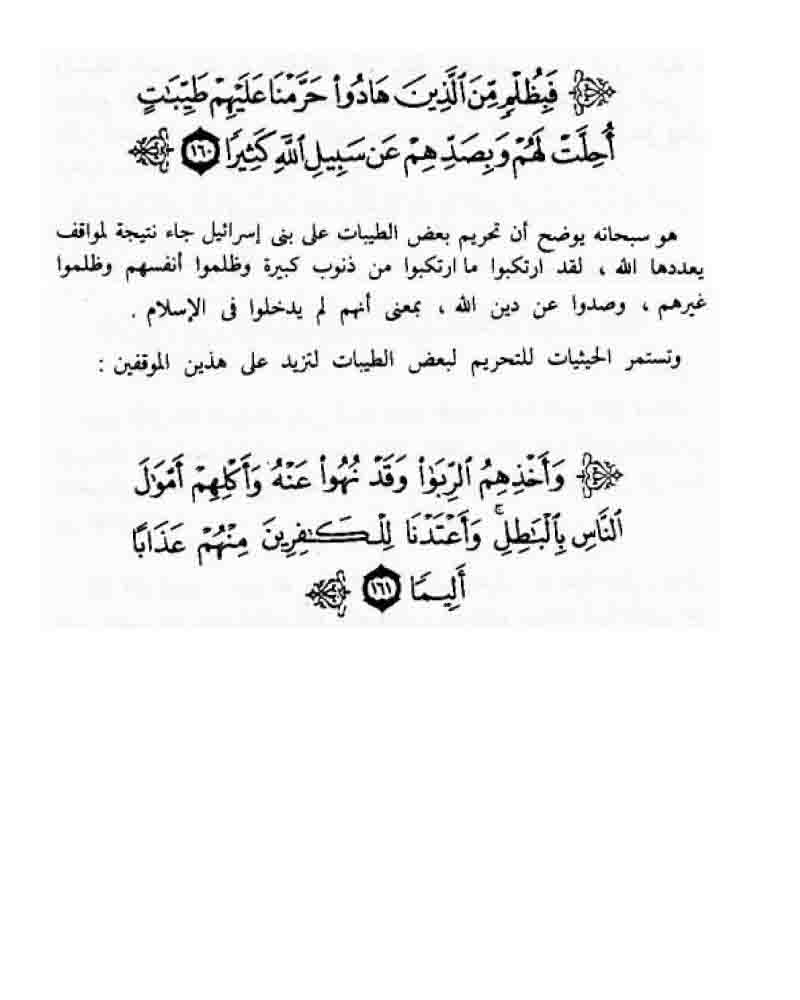 ﴿ فَبِظُلْمٍ مِّنَ ٱلَّذِينَ هَادُوا۟ حَرَّمْنَا عَلَيْهِمْ طَيِّبَٰتٍ
أُحِلَّتْ لَهُمْ وَبِصَدِّهِمْ عَن سَبِيلِ ٱللَّهِ كَثِيرًا ١٦٠ ﴾
هو سبحانه يوضح أن تحريم بعض الطيبات على بنى إسرائيل جاء نتيجة لمواقف
يعددها الله ، لقد ارتكبوا ما ارتكبوا من ذنوب كبيرة وظلموا أنفسهم وظلموا
غيرهم ، وصدوا عن دين الله ، بمعنى أنهم لم يدخلوا فى الإسلام .
وتستمر الحيثيات للتحريم لبعض الطيبات لتزيد على هذين الموقفين :
﴿ وَأَخْذِهِمُ ٱلرِّبَوٰا۟ وَقَدْ نُهُوا۟ عَنْهُ وَأَكْلِهِمْ أَمْوَٰلَ
ٱلنَّاسِ بِٱلْبَٰطِلِ ۚ وَأَعْتَدْنَا لِلْكَٰفِرِينَ مِنْهُمْ عَذَابًا
أَلِيمًا ١٦١ ﴾